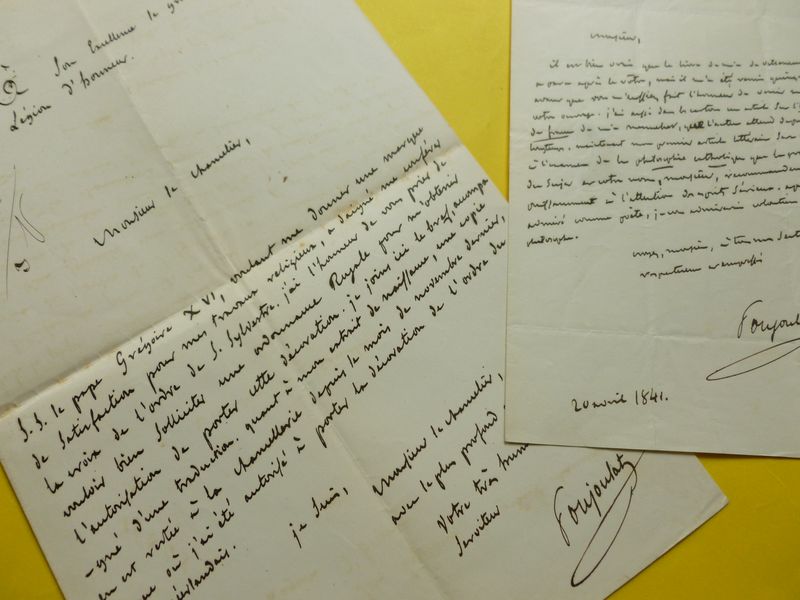 à Son Excellence le
Légion d'honneur.
Monsieur le chancelier,
S. S. le pape Grégoire XVI, voulant me donner une marque
de satisfaction pour mes travaux religieux, a daigné me conférer
la croix de l'ordre de S. Sylvestre. j'ai l'honneur de vous prier de
vouloir bien solliciter une ordonnance Royale pour me obtenir
l'autorisation de porter cette décoration. je joins ici le bref, accompa
-gné d'une traduction. quant à mon extrait de naissance, une copie
en est restée à la chancellerie depuis le mois de novembre dernier,
où j'ai été autorisé à porter la décoration de l'ordre du
je suis,
Monsieur le chancelier,
avec le plus profond
Votre très hum
Serviteur
Poujoulat
monsieur,
il est bien vrai que le livre de m. de
a paru après le vôtre, mais il m'a été remis
avant que vous m'eussiez fait l'honneur de
votre ouvrage. j'ai aussi dans le carton un article sur l'
de france de m. que l'auteur attend depuis
longtems. maintenant mon premier article littéraire sera
à l'examen de la philosophie catholique que la
du sujet et votre nom, monsieur, recommandent
suffisamment à l'attention des esprits sérieux. après
admiré comme poète, je vous admirerai volontiers
philosophe.
croyez, monsieur, à tous mes
respectueux et empressés
Poujoulat
20 avril 1841.